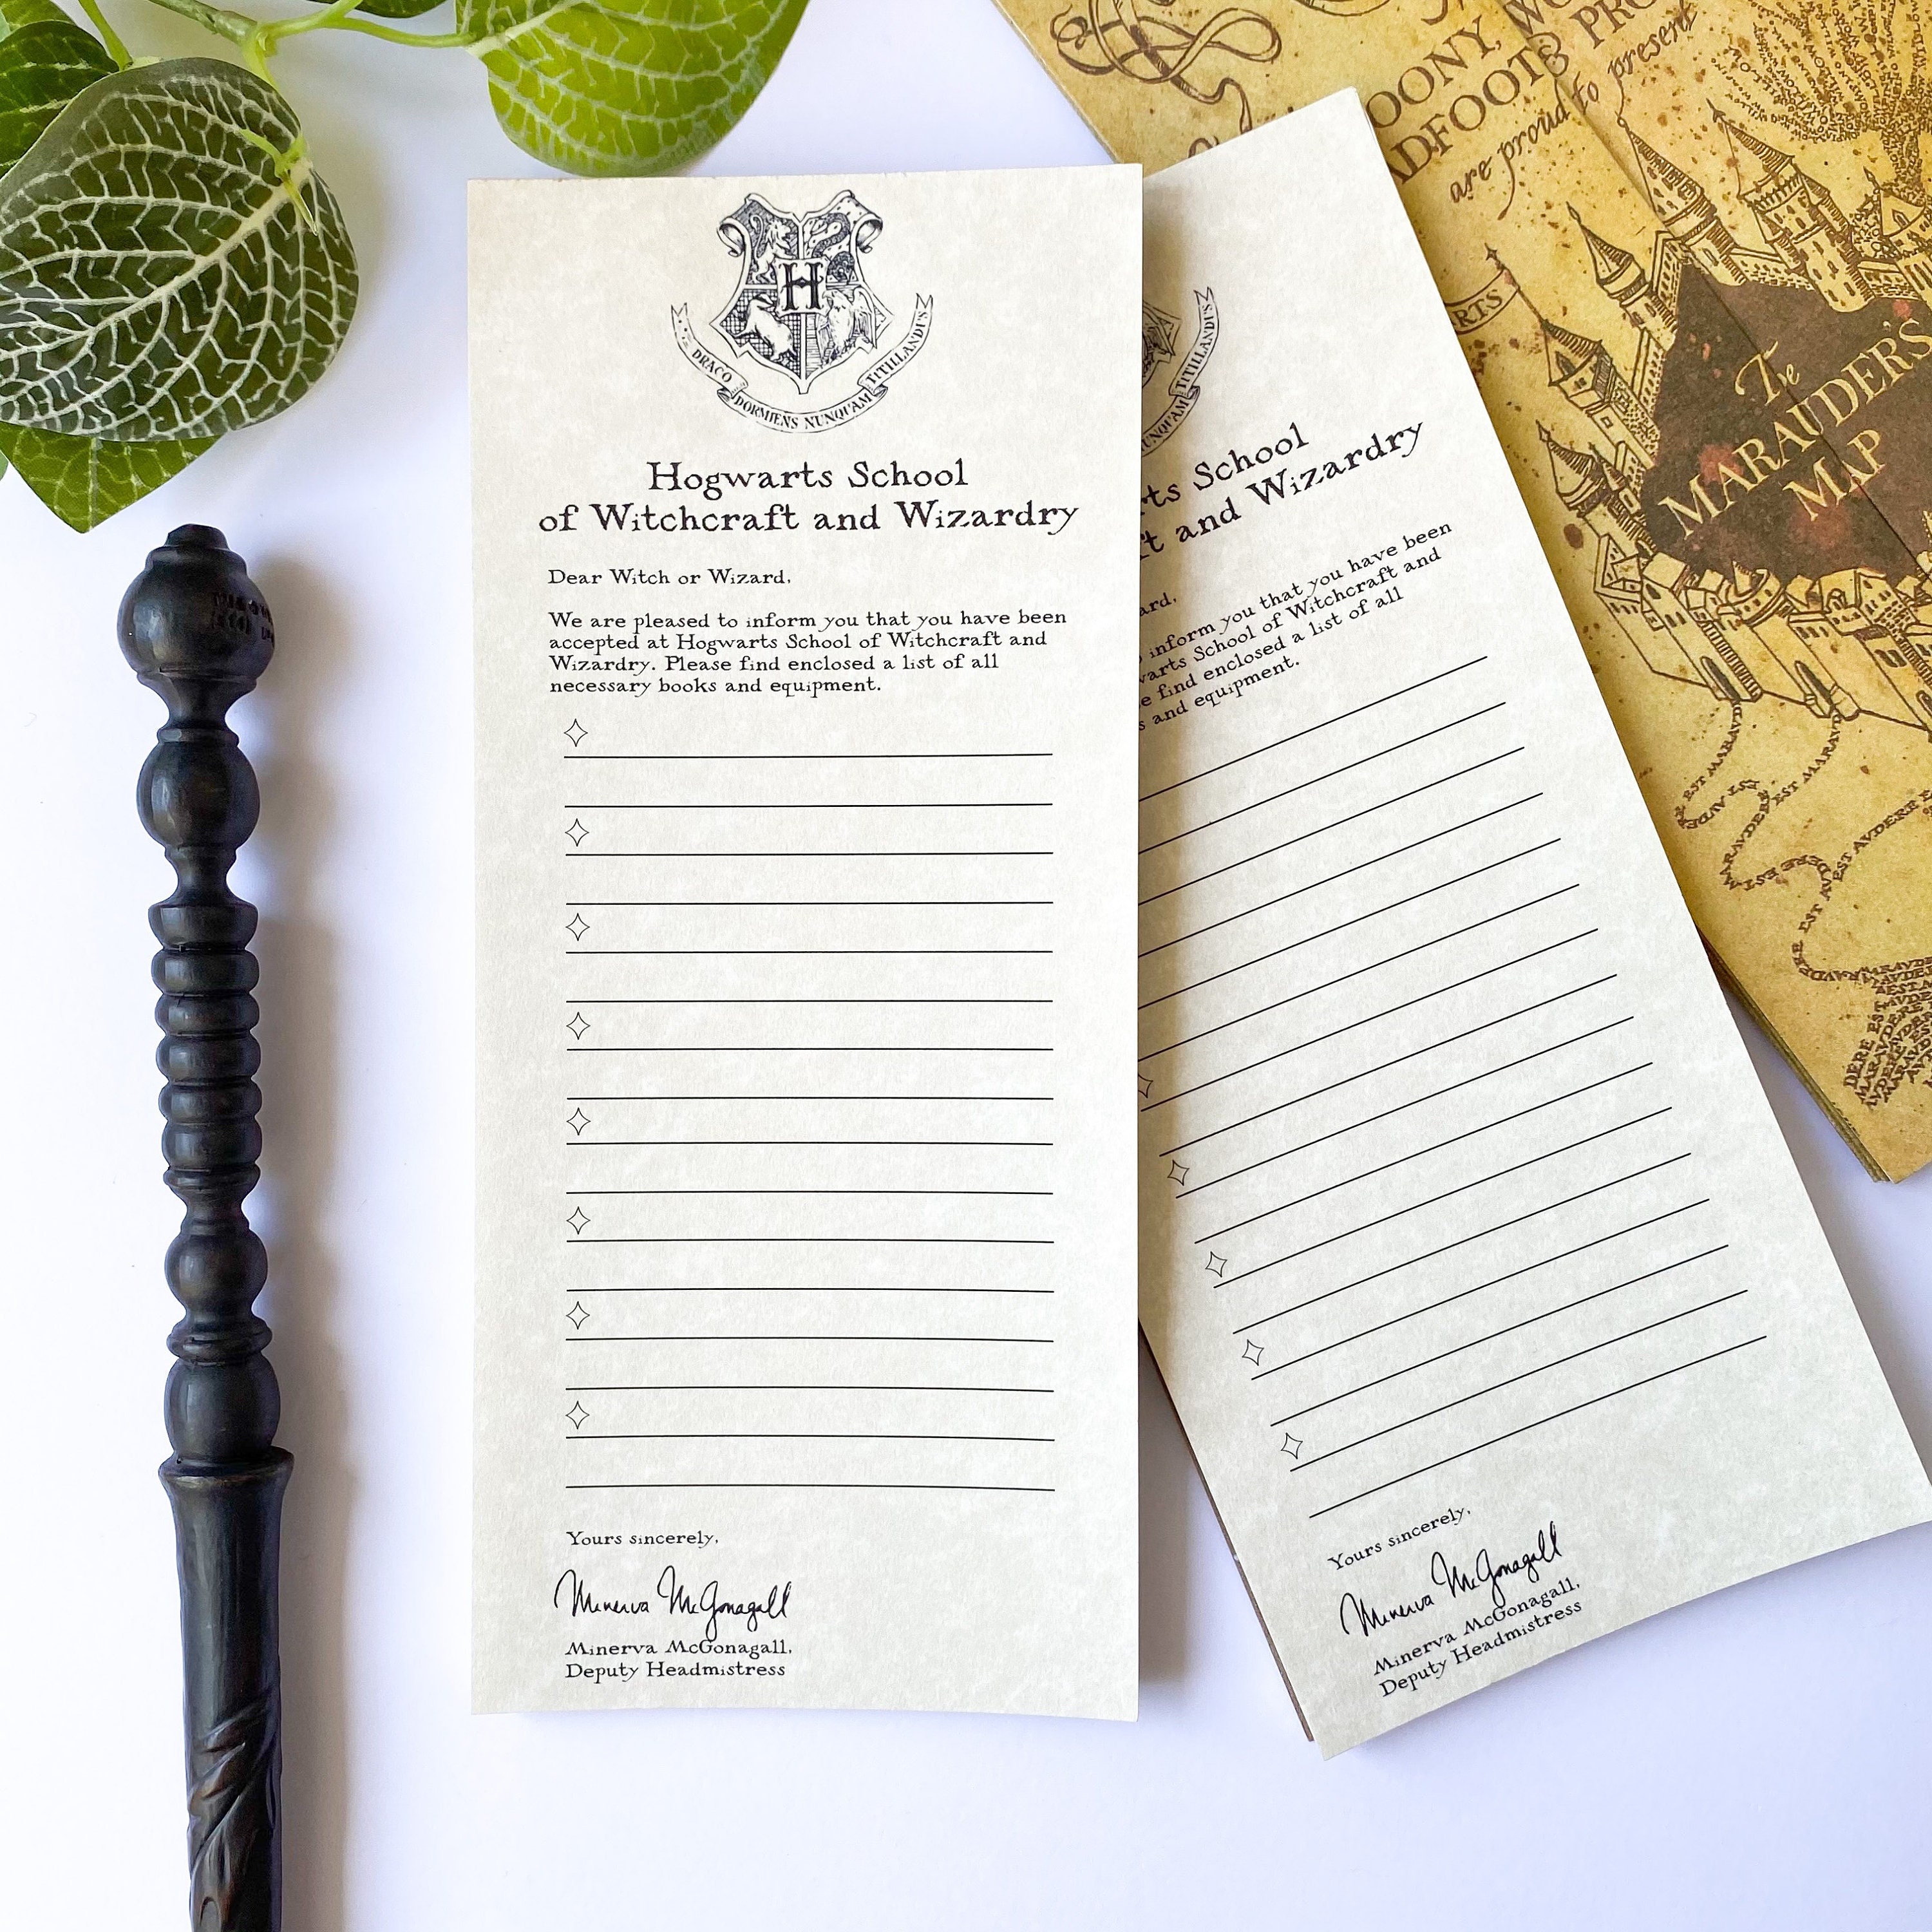 H
DRACO DORMIENS NUNQUAM TITILLANDUS
Hogwarts School
of Witchcraft and Wizardry
Dear Witch or Wizard,
We are pleased to inform you that you have been
accepted at Hogwarts School of Witchcraft and
Wizardry. Please find enclosed a list of all
necessary books and equipment.
Yours sincerely,
Minerva McGonagall
Minerva McGonagall,
Deputy Headmistress
NUNQUAM TITILLANDUS
rts School
ft and Wizardry
ard,
inform you that you have been
warts School of Witchcraft and
e find enclosed a list of all
s and equipment.
Yours sincerely,
Minerva McGonagall
Minerva McGonagall,
Deputy Headmistress
OONY,
ADFOOT & PRO
are proud to present
RTS
The
MARAUDER'S
MAP